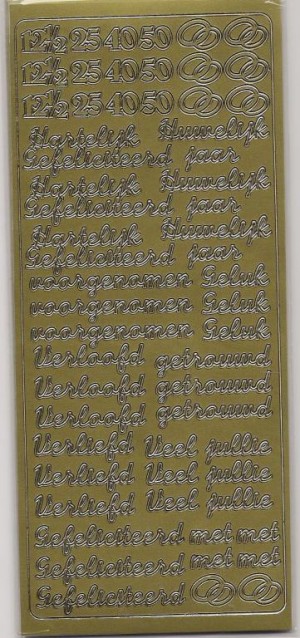 12½ 25 40 50
12½ 25 40 50
12½ 25 40 50
Hartelijk Huwelijk
Gefeliciteerd jaar
Hartelijk Huwelijk
Gefeliciteerd jaar
Hartelijk Huwelijk
Gefeliciteerd jaar
voorgenomen Geluk
voorgenomen Geluk
voorgenomen Geluk
Verloofd getrouwd
Verloofd getrouwd
Verloofd getrouwd
Verliefd Veel jullie
Verliefd Veel jullie
Verliefd Veel jullie
Gefeliciteerd met met
Gefeliciteerd met met
Gefeliciteerd